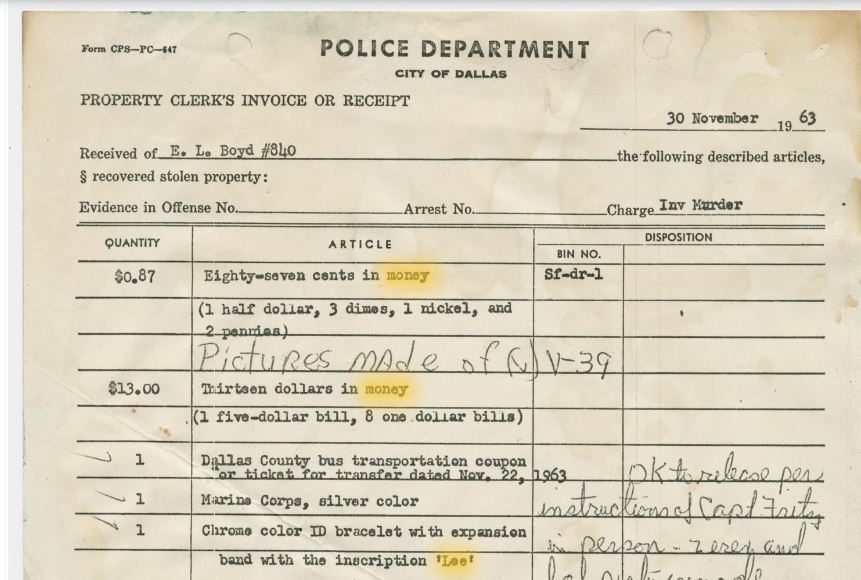 Form CPS—PC—647
POLICE DEPARTMENT
CITY OF DALLAS
PROPERTY CLERK'S INVOICE OR RECEIPT
30 November 1963
Received of E. L. Boyd #840 the following described articles,
§ recovered stolen property:
Evidence in Offense No. Arrest No. Charge Inv Murder
QUANTITY ARTICLE DISPOSITION
BIN NO.
$0.87 Eighty-seven cents in money Sf-dr-1
(1 half dollar, 3 dimes, 1 nickel, and
2 pennies)
Pictures made of V-39
$13.00 Thirteen dollars in money
(1 five-dollar bill, 8 one dollar bills)
1 Dallas County bus transportation coupon
or ticket for transfer dated Nov. 22, 1963 OK to release per
1 Marine Corps, silver color instructions of Capt Fritz
1 Chrome color ID bracelet with expansion in person - and
band with the inscription 'Lee'